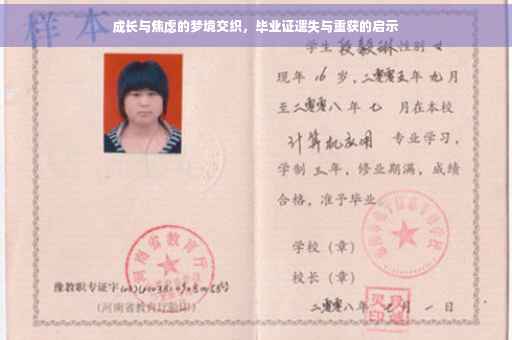 成长与焦虑的梦境交织，毕业证遗失与重获的启示
样本
学生 段毅琳 性别 女
现年 16 岁，二零零五年 九 月
至二零零八年 七 月在本校
计算机应用 专业学习，
学制 三 年，修业期满，成绩
合格，准予毕业
学校（章）
校长（章）
二零零八年 月 一 日
河南省教育厅
豫教职专证字
（河南省教育厅验印）